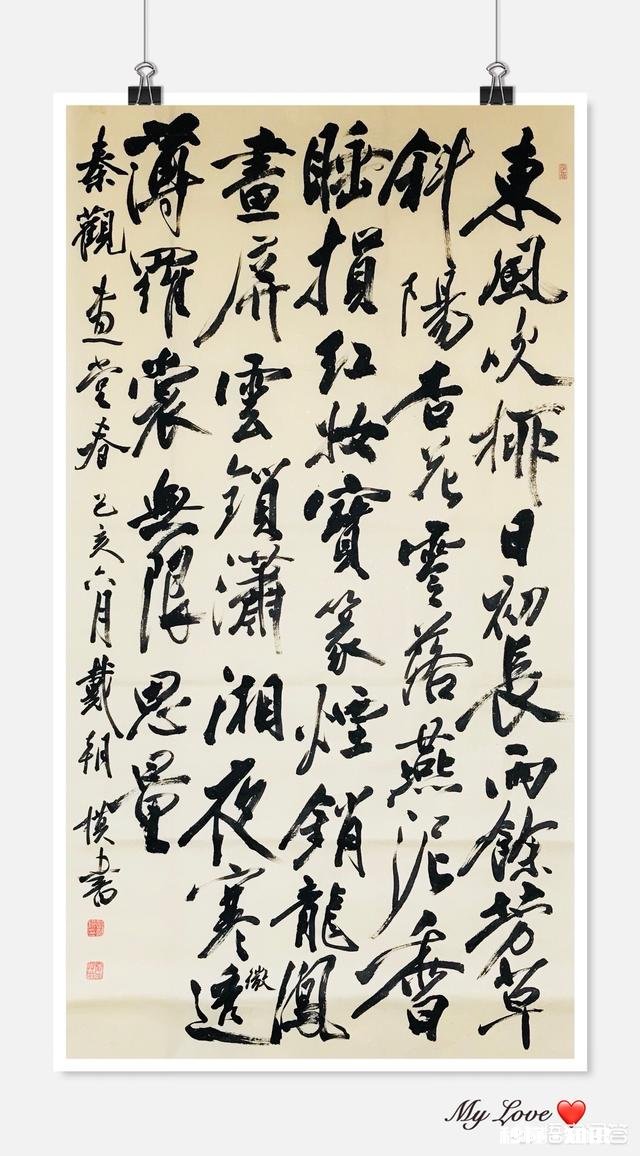 東風吹柳日初長雨餘芳草
斜陽杏花零落燕泥香
睡損紅妝寶篆煙銷龍鳳
畫屏雲鎖瀟湘夜寒微透
薄羅裳無限思量
秦觀畫堂春己亥六月戴朝模書
My Love